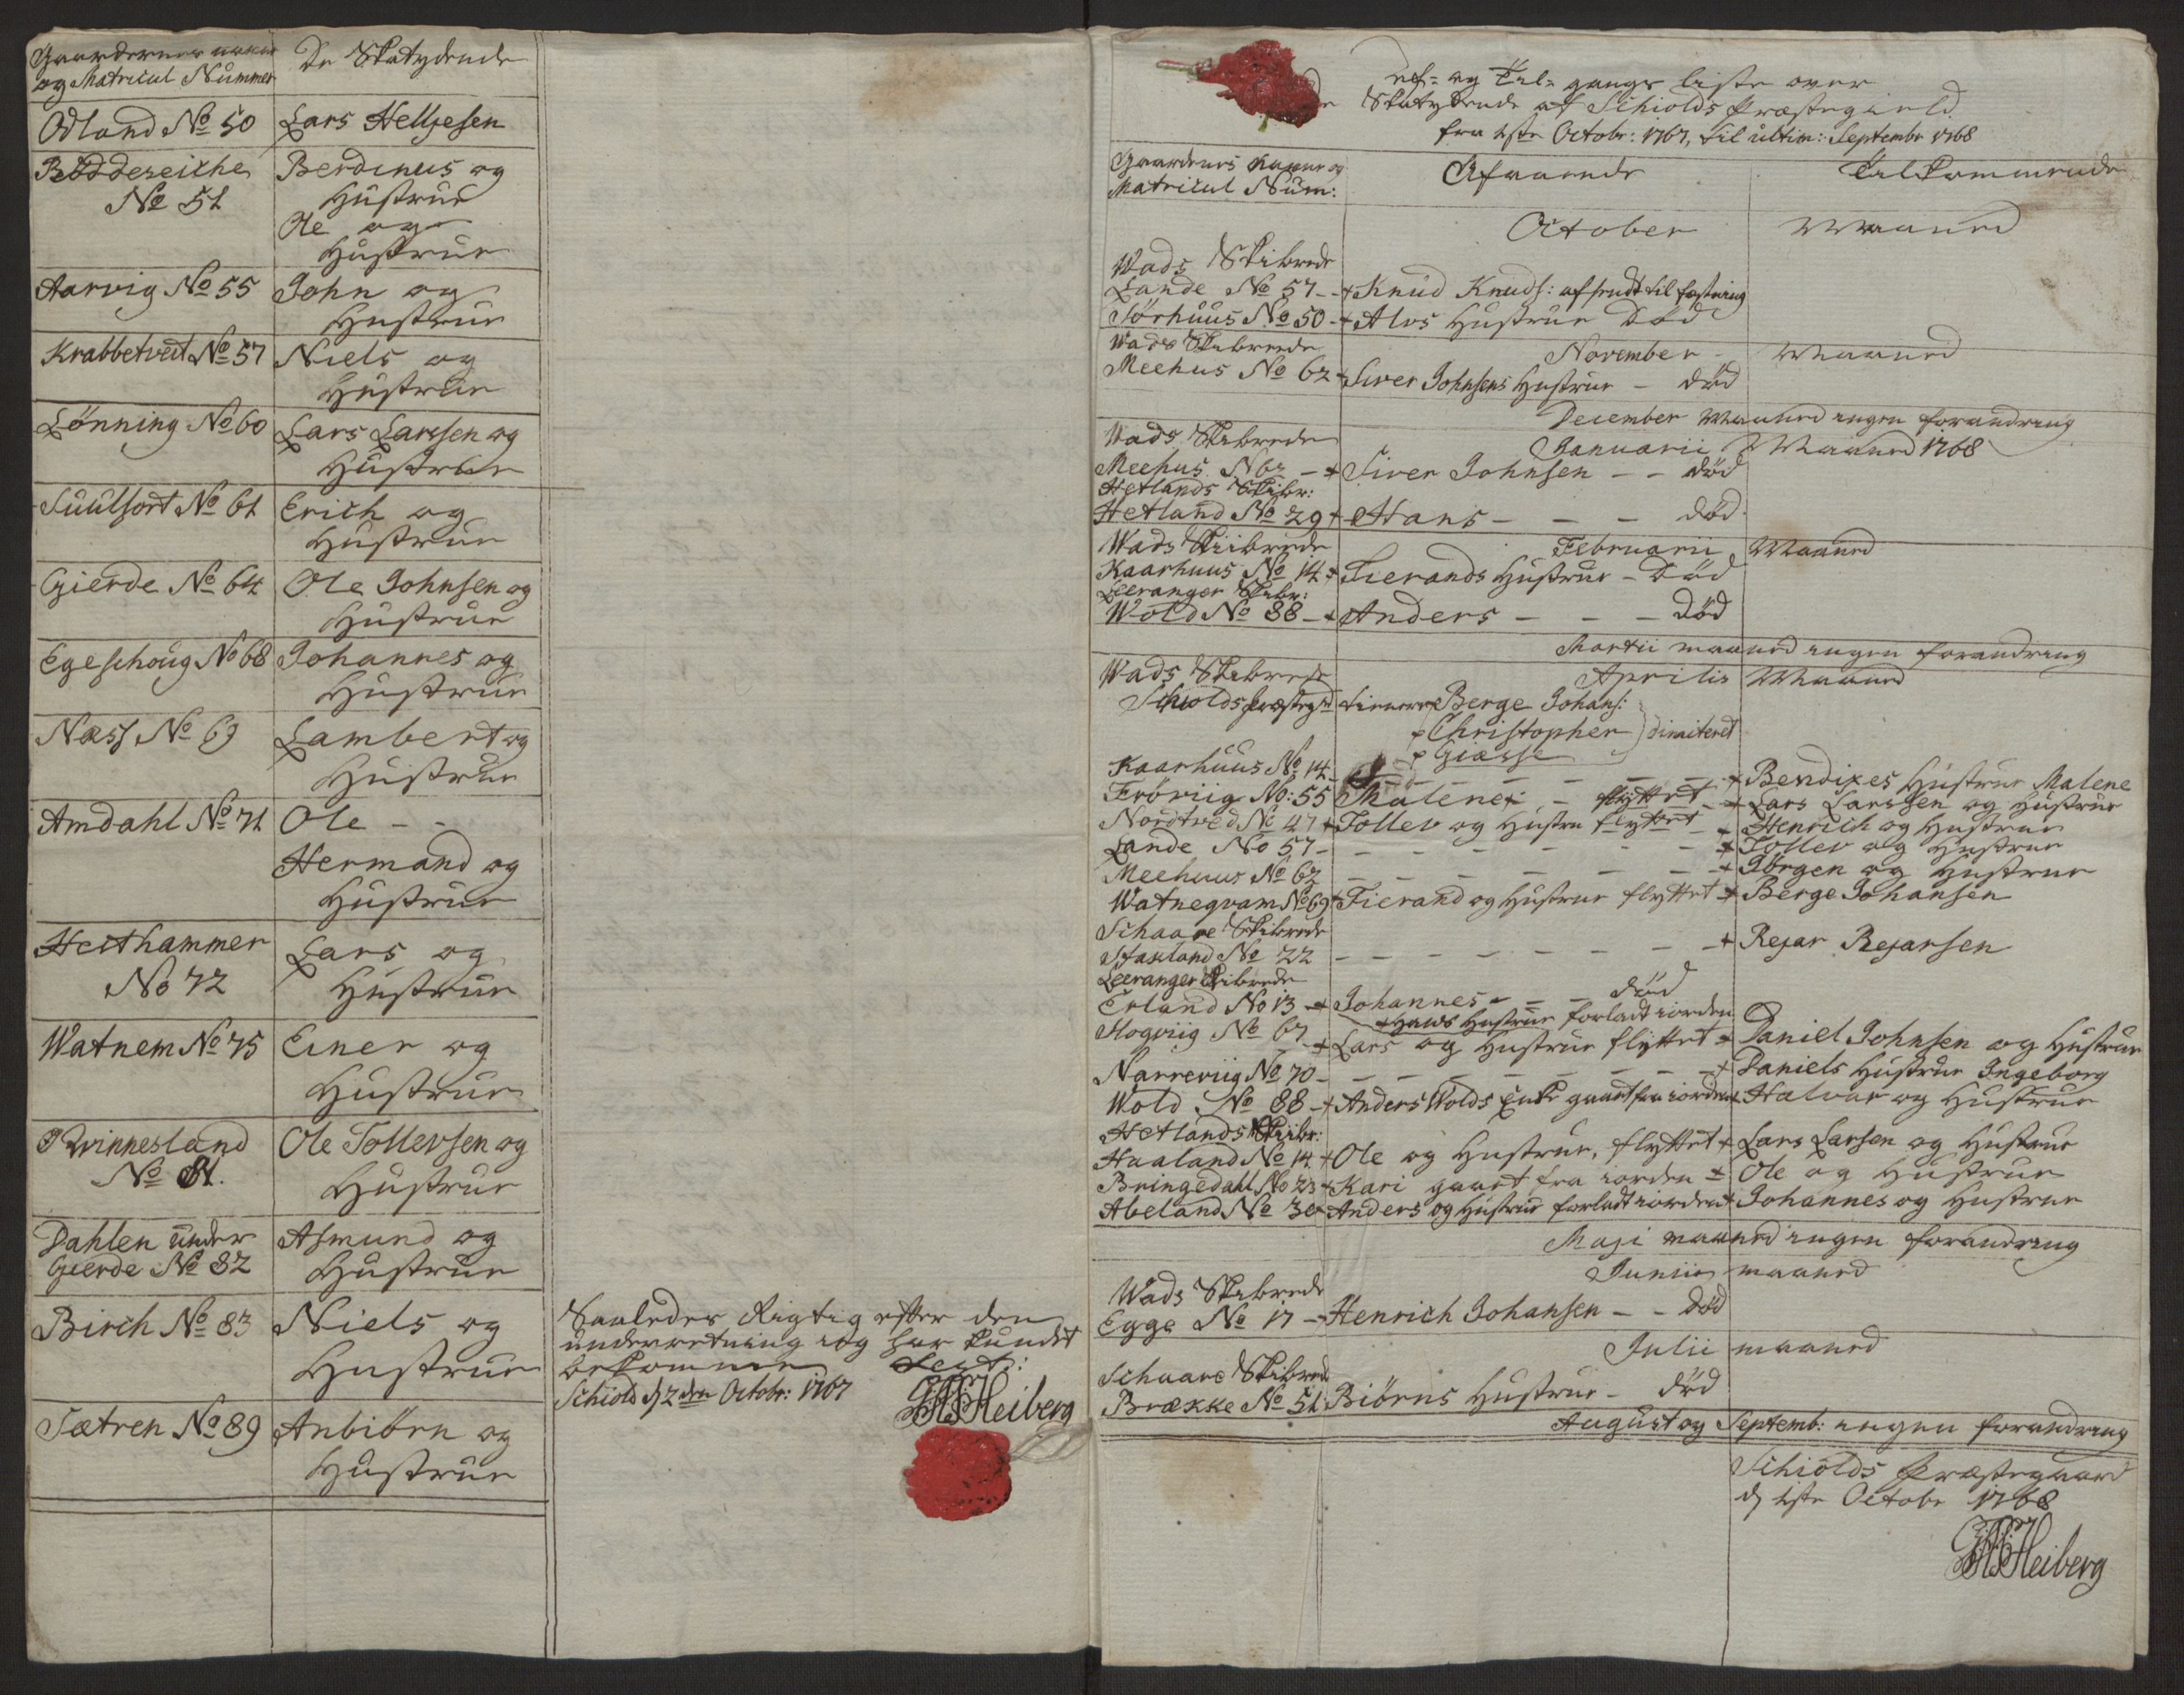 Gaardernes nafne
og Matricul Nummer
De Skatydende
Odland No 50 Lars Helljesen
Røddereiche
No 51
Berdinus og
Hustrue
Ole og
Hustrue
Aarvig No 55 John og
Hustrue
Krabbetveit No 57 Niels og
Hustrue
Lønning No 60 Lars Larssen og
Hustrue
Suulfort No 61 Erich og
Hustrue
Gierde No 64 Ole Johnsen og
Hustrue
Egeschoug No 68 Johannes og
Hustrue
Næss No 69 Lambert og
Hustrue
Amdahl No 71 Ole - -
Hermand og
Hustrue
Heithammer
No 72
Lars og
Hustrue
Watnem No 75 Einer og
Hustrue
Qvinnesland
No 81.
Ole Tollevsen og
Hustrue
Dahlen under
Gierde No 82
Asmund og
Hustrue
Birch No 83 Niels og
Hustrue
Sætren No 89 Anbiørn og
Hustrue
Saaledes Rigtig efter den
underretning ieg har kundet
bekomme
Schiold d 2den Octobr: 1767
Heiberg
Af- og Til- gangs liste over
Skatydende af Schiolds Præstegield
fra 1ste Octobr: 1767, til ultim: Septembr 1768
Gaardenes Nafne og
Matricul Num:
Afgaaende
Tilkommende
October Maaned
Wads Skibrede
Lande No 57 - + Knud Knuds: afsendt til fæstning
Sørhuus No 50 - + Alvs Hustrue Død
Wads Skibrede
November - Maaned
Meehus No 62 + Siver Johnsens Hustrue - død
December Maaned ingen forandring
Wads Skibrede
Januarii Maaned 1768
Meehus No 62 - + Siver Johnsen - - død
Hetlands Skibr:
Hetland No 29 + Hans - - - død.
Wads Skibrede
Februarii Maaned
Kaarhuus No 14 + Tierands Hustrue - Død
Leeranger Skibr:
Wold No 88 - + Anders - - - død
Martii maaned ingen forandring
Wads Skibrede
Aprilis Maaned
Schiolds præstegrd tienere Berge Johans:
Christopher } dimiteret
Giæsse
Kaarhuus No 14 - - - - - + Bendixes Hustrue Malene
Frøviig No: 55 Malene - flyttet - + Lars Larssen og Hustrue
Nordtved No 47 + Tollev og Hustru flyttet - Henrich og Hustrue
Lande No 57 - - - - - - + Tollev og Hustrue
Meehuus No 62 - - - - - + Jørgen og Hustrue
Watneqvam No 69 + Tierand og Hustrue flyttet + Berge Johansen
Schaare Skibrede
Staxland No 22 - - - - - - - + Rejar Rejarsen
Leeranger Skibrede
Erland No 13 + Johannes - - - død
+ Hans Hustrue forladt iorden
Slogviig No 67 - + Lars og Hustrue flyttet + Daniel Johnsen og Hustrue
Narreviig No 70 - - - - - - - + Daniels Hustrue Ingeborg
Wold No 88 - + Anders Wolds Enke gaaet fra iorden + Halvor og Hustrue
Hetlands Skibr:
Haaland No 14 + Ole og Hustrue, flyttet + Lars Larsen og Hustrue
Bringedahl No 23 + Kari gaaet fra iorden + Ole og Hustrue
Abeland No 30 + Anders og Hustrue forladt iorden + Johannes og Hustrue
Maji maaned ingen forandring
Junii maaned
Wads Skibrede
Egge No 17 - Henrich Johansen - - død
Julii maaned
Schaare Skibrede
Brække No 51 Biørns Hustrue - død
August og Septemb: ingen forandring
Schiolds Præstegaard
d 1ste Octobr 1768
Heiberg